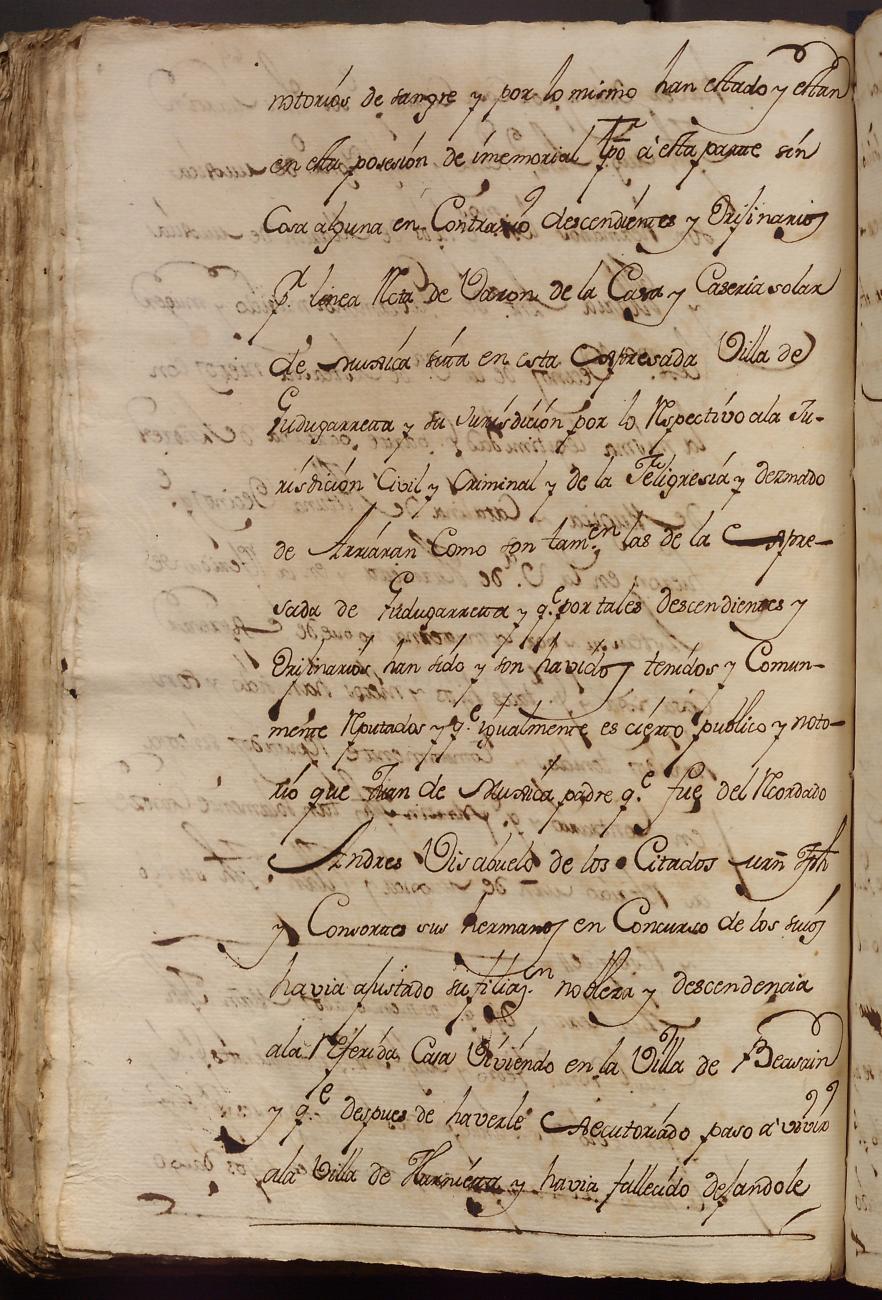 notorios de sangre y por lo mismo han estado y estan
en esta posesión de imemorial tpō a esta parte sin
Cosa alguna en Contrario descendientes y Orijinarios
pr linea Rcta de Varon de la Casa y Caseria solar
de Muxica sita en esta Expresada Villa de
Gudugarreta y su Jurisdición por lo Respectivo ala Ju-
risdición Civil y Criminal y de la Feligresia y dezmado
de Arriaran Como son tamen las de la Expre-
sada de Gudugarreta y qe por tales descendientes y
Orijinarios han sido y son havidos tenidos y Comun-
mente Rputados y qe igualmente es cierto publico y noto-
rio que Juan de Muxica padre qe fue del Rcordado
Andres Visabuelo de los Citados Jph
y Consortes sus hermanos en Concurso de los suios
havia ajustado su filiaon nobleza y descendencia
ala Rferida Casa Viviendo en la Villa de Beasain
y qe despues de haverle Executoriado paso a vivir
ala Villa de y havia fallecido dejandole